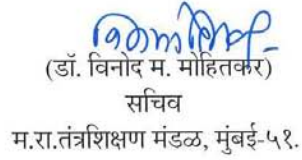 (डॉ. विनोद म. मोहितकर)
सचिव
म.रा.तंत्रशिक्षण मंडळ, मुंबई-५१.